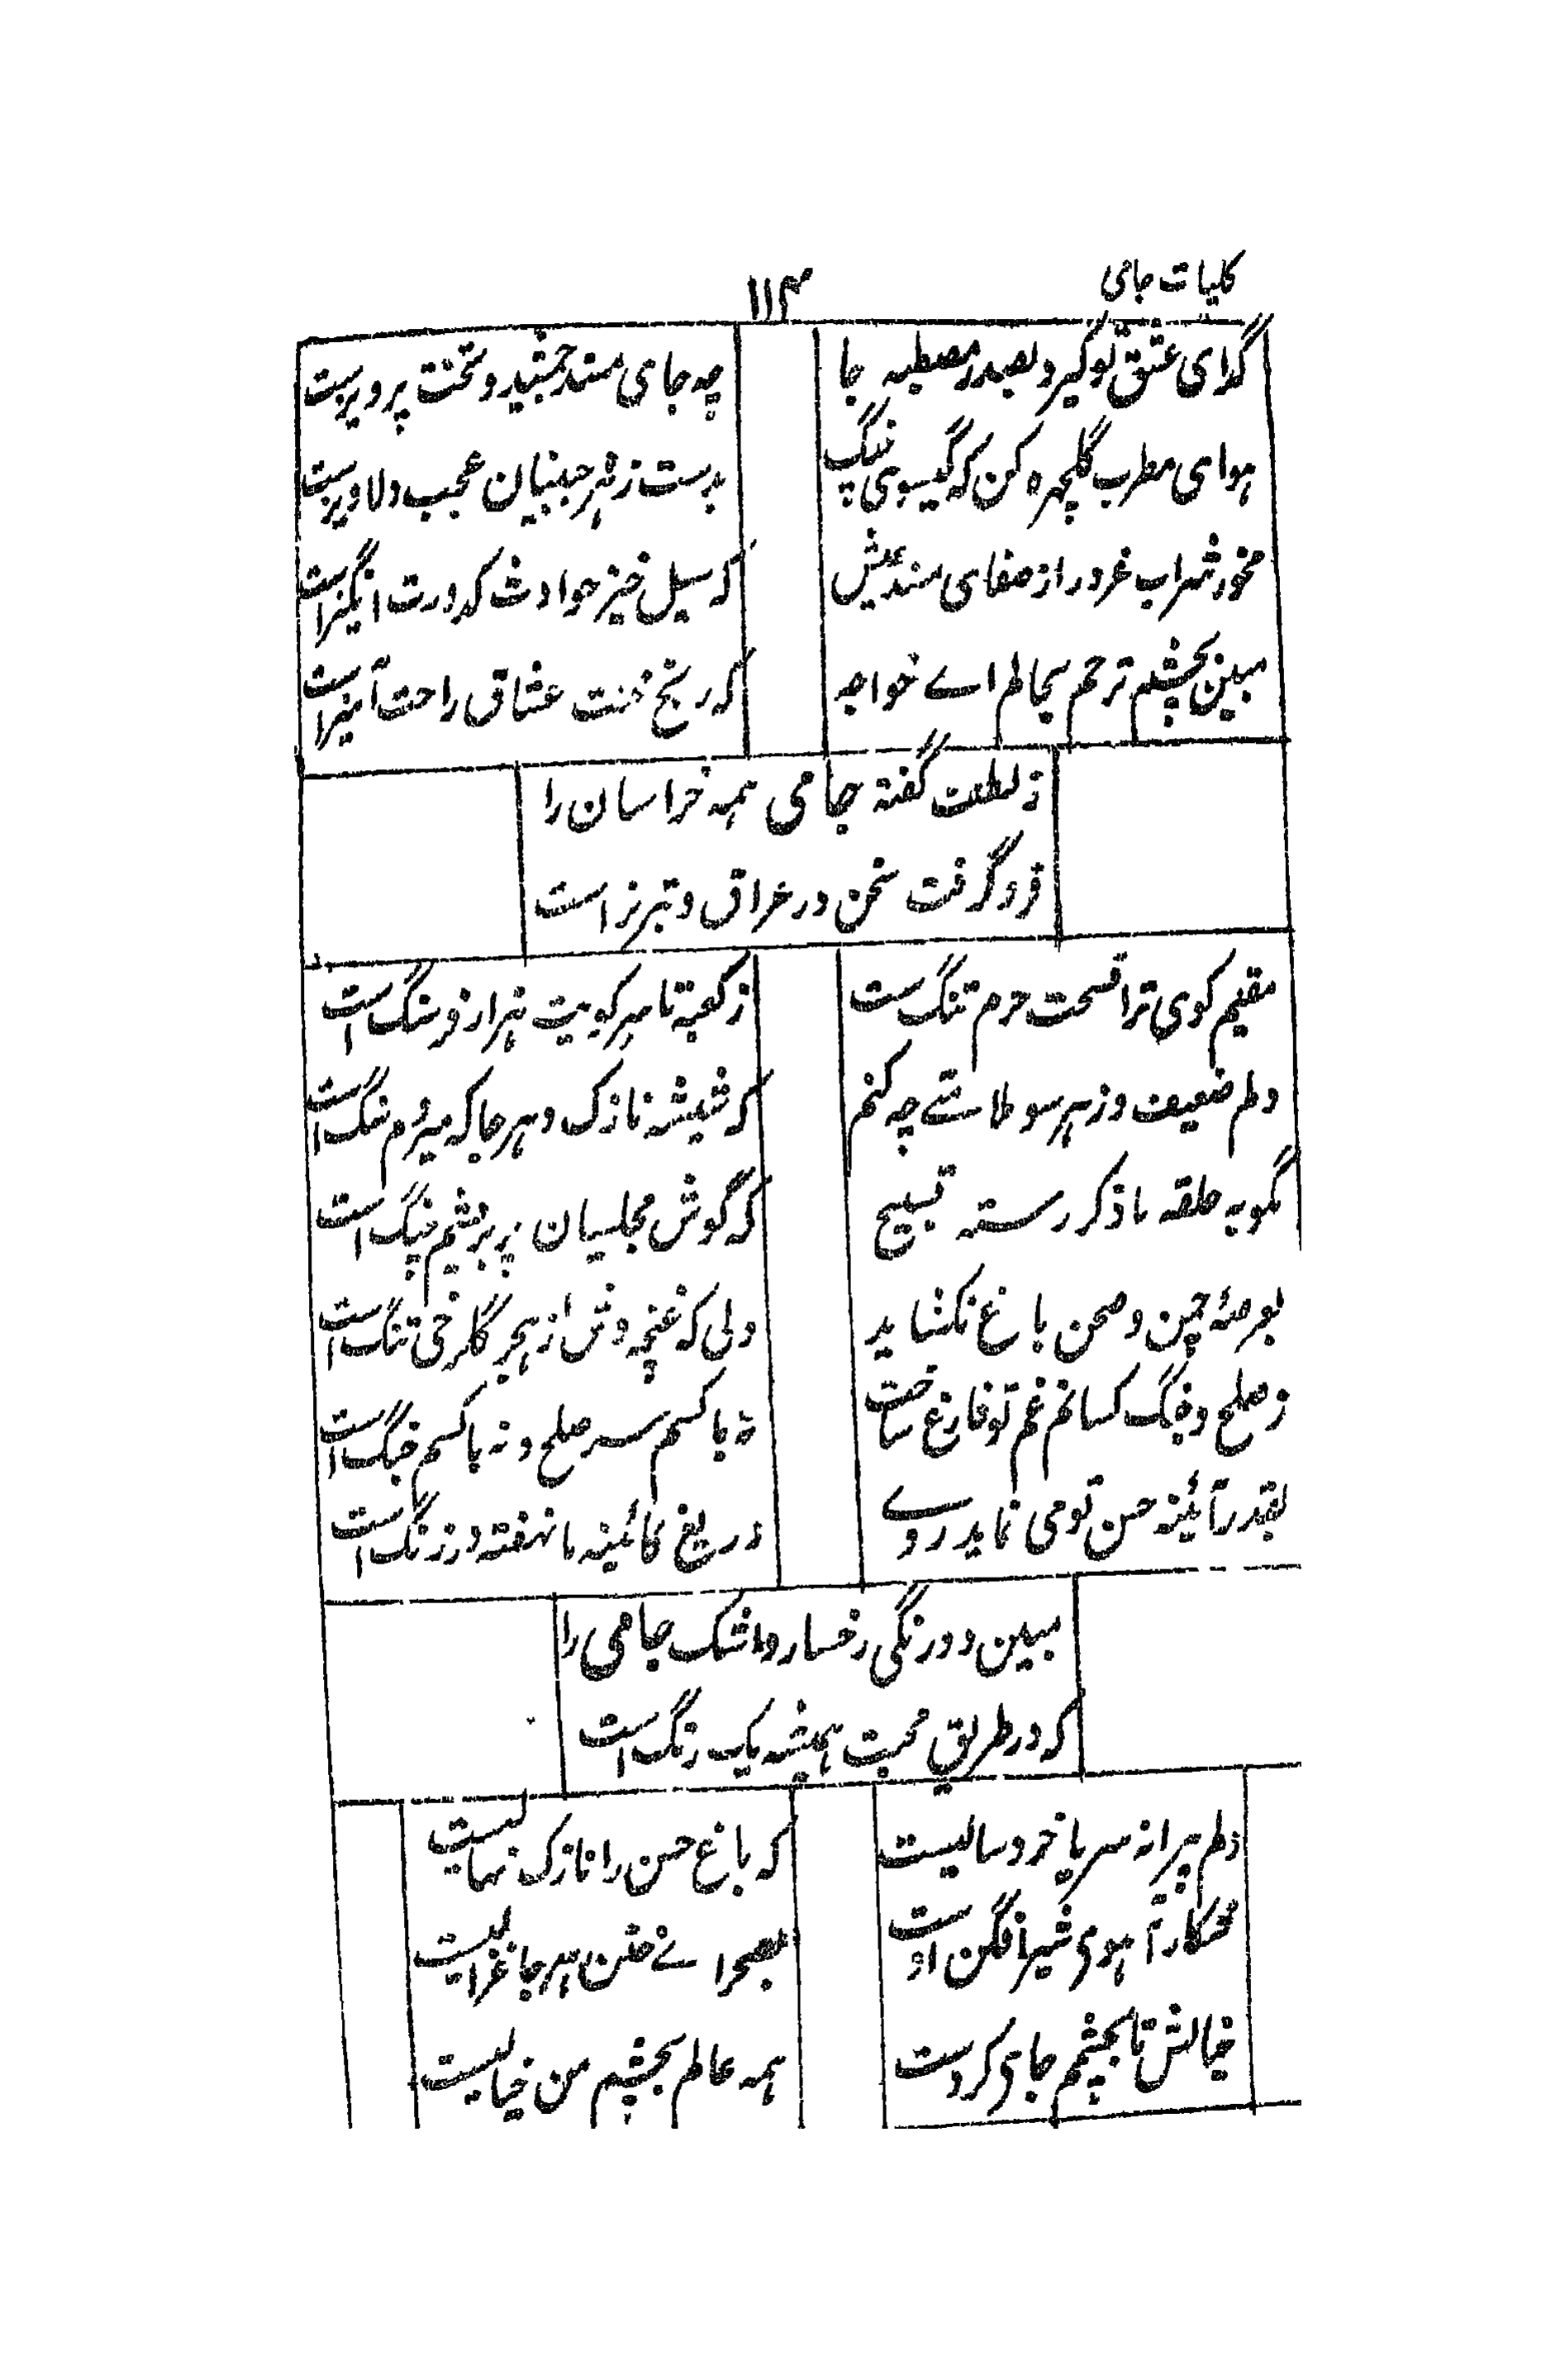 کلیات جامی
۱۱۴
گدای عشق تو گیرد بصدر مصطبه جا
چه جای مسند جمشید و تخت پرویزست
هوای مطرب گلچهره کن که گیسوی چنگ
بدست زهره جبینان عجب دلاویزست
مخور شراب غرور از صفای مسند عیش
که سیل خیز حوادث کدورت انگیزاست
مبین بچشم ترحم بحالم اے خواجه
که رنج محنت عشاق راحت آمیزاست
ز لطف گفته جامی همه خراسان را
فرو گرفت سخن در عراق و تبریز است
مقیم کوی ترا فسحت حرم تنگ ست
ز کعبه تا سر کویت هزار فرسنگ است
دلم ضعیف و ز هر سو ملامتے چه کنم
که شیشه نازک و هر جا که میروم سنگ است
مگو به حلقه ما ذکر رسته تسبیح
که گوش مجلسیان پر بریشم چنگ است
بعرصه چمن و صحن باغ نکشاید
دلی که غنچه وش از هجر گلرخی تنگ است
ز صلح و جنگ کسانم غم تو فارغ ساخت
نه با کسم سر صلح و نه با کسم جنگ است
بقدر آئینه حسن تو می نماید روے
دریغ کائینه ما نهفته در زنگ است
ببین دو رنگی رخسار و اشک جامی را
که در طریق محبت همیشه یک رنگ است
دلم پیرانه سر با خرد سالیست
که باغ حسن را نازک نهالیست
شکار آهوی شیر افگن اوست
بصحراے ختن هر جا غزالیست
خیالش تا بچشمم جای کردست
همه عالم بچشم من خیالیست